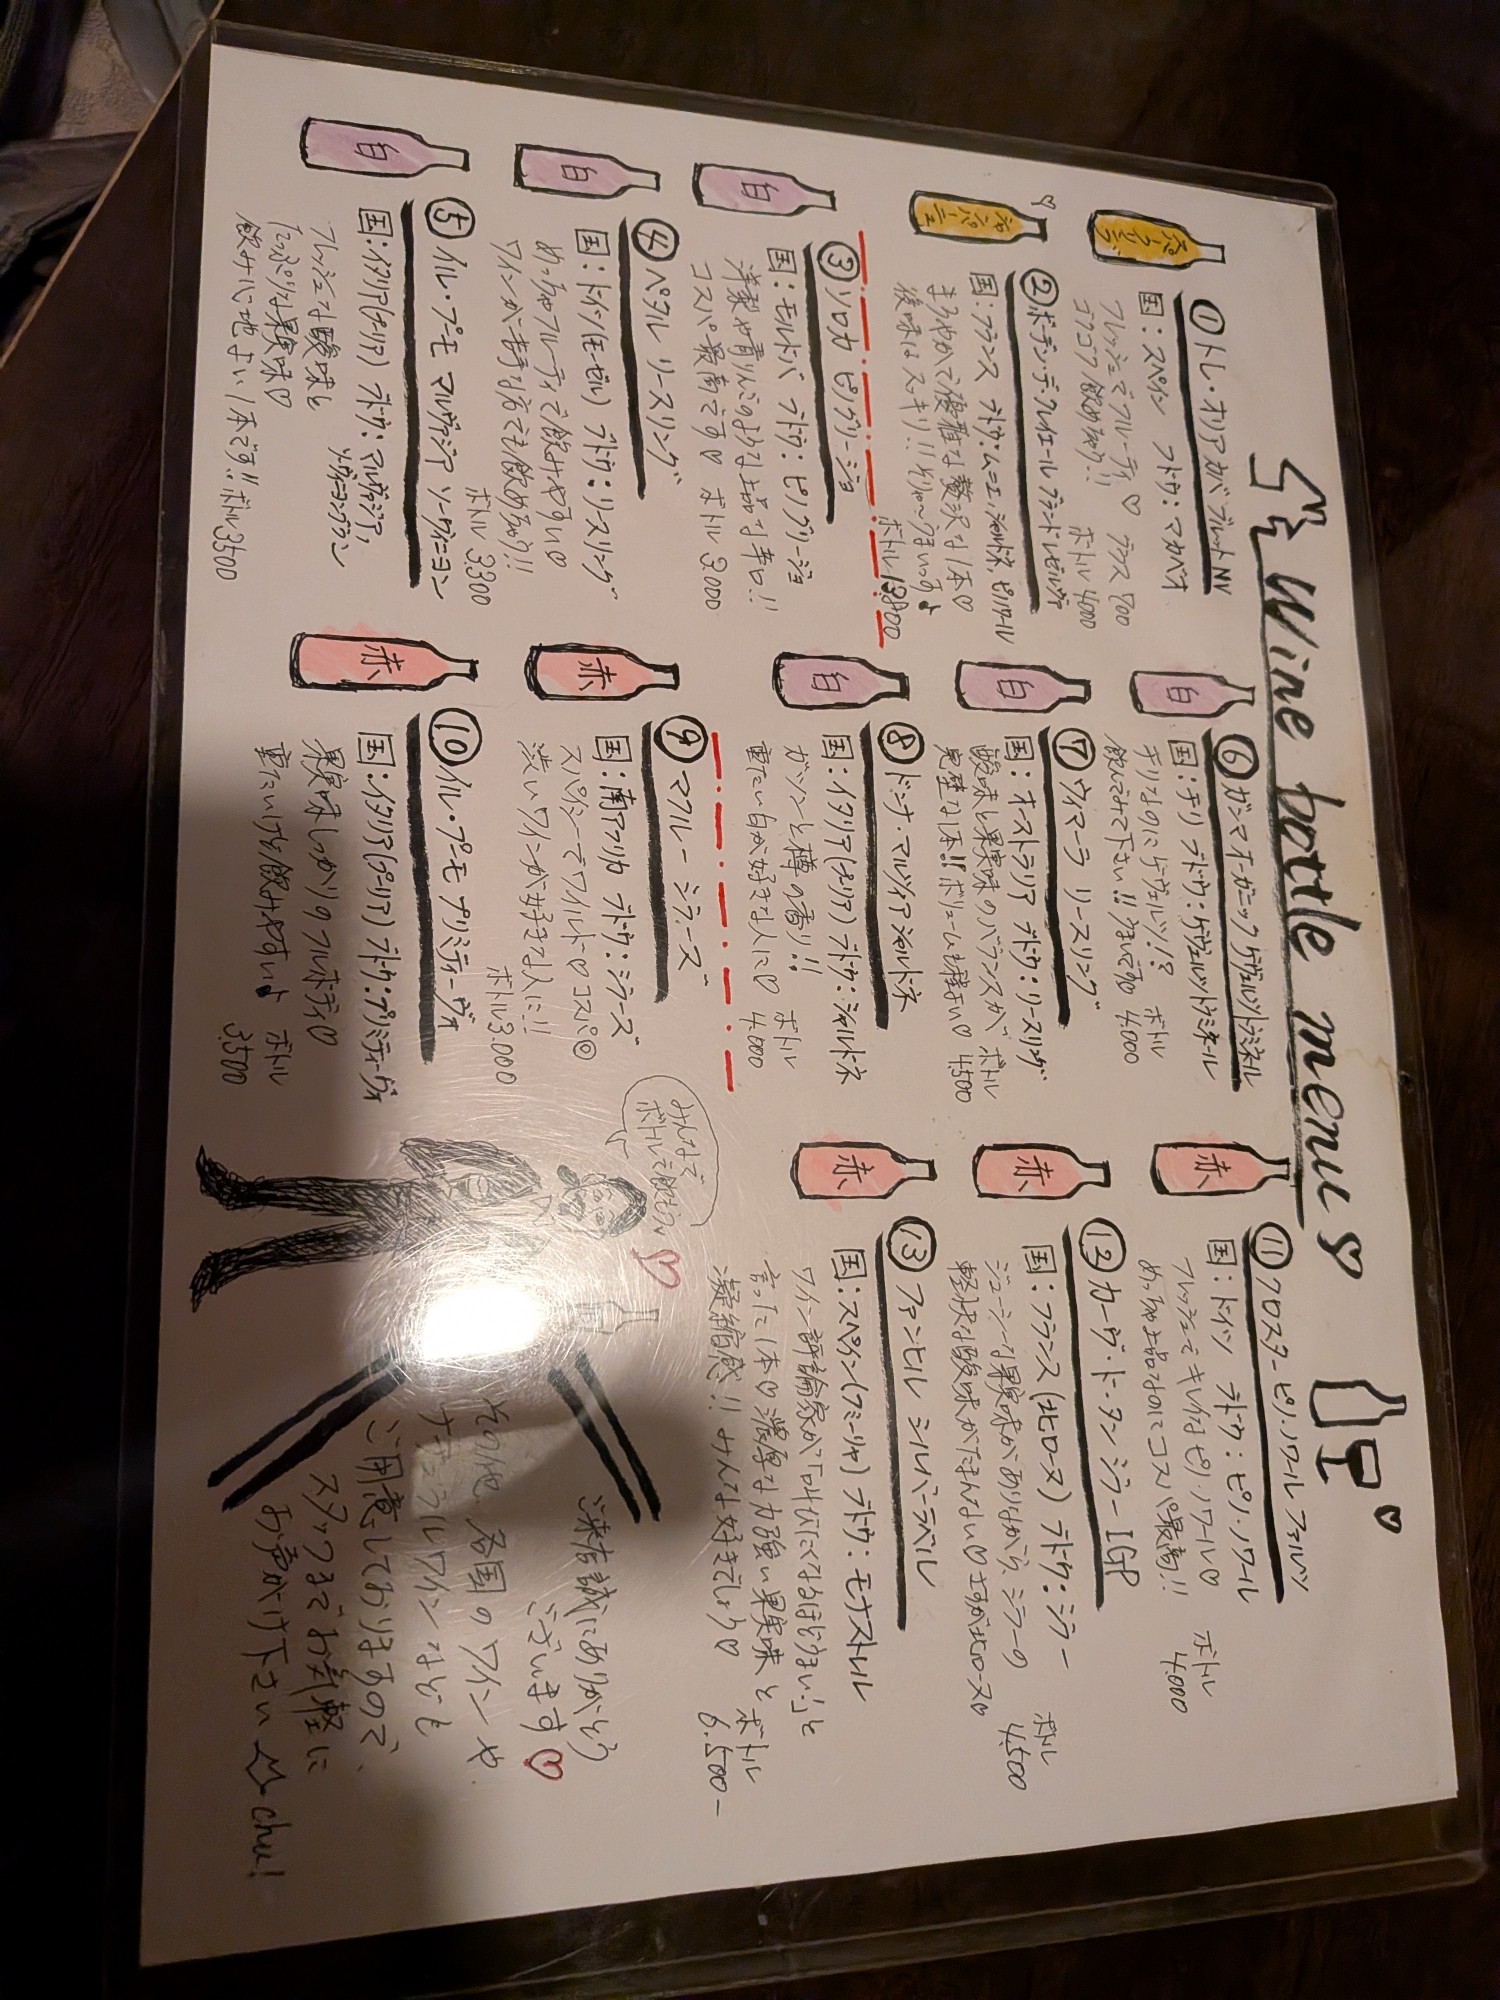 Wine bottle menu
スパークリング
① トレ・オリア カバ ブルット NV
国：スペイン ブドウ：マカベオ
フレッシュでフルーティ♡ グラス 700
ゴクゴク飲めちゃう!! ボトル 4000
シャンパーニュ
② ボーデン・デ・クレイエール グランド レゼルヴァ
国：フランス ブドウ：ムニエ, シャルドネ, ピノノワール
まろやかで優雅な贅沢な1本♡
後味はスッキリ!! りゃ〜うまいっす♪
ボトル 13800
白
③ ソロカ ピングリージョ
国：モルドバ ブドウ：ピングリージョ
洋梨や青りんごのような上品な辛口!!
コスパ最高です♡ ボトル 3.000
白
④ ペフル リースリング
国：ドイツ(モーゼル) ブドウ：リースリング
めっちゃフルーティで飲みやすい♡
ワインが苦手な方でも飲めちゃう!!
ボトル 3300
白
⑤ イル・プーモ マルヴァジア ソーヴィニヨン
国：イタリア(プーリア) ブドウ：マルヴァジア,
ソーヴィニヨンブラン
フレッシュな酸味と
たっぷりな果実味♡
飲みゴコ地よい1本です!! ボトル 3500
白
⑥ ガンマ オーガニック ゲヴェルツトラミネル
国：チリ ブドウ：ゲヴェルツトラミネール
チリなのにゲヴェルツ!?
飲んでみて下さい!! うまいで ボトル
4.000
白
⑦ ヴィマーラ リースリング
国：オーストラリア ブドウ：リースリング
酸味と果実味のバランスが ボトル
完璧な1本!! ボリュームも程よい♡ 4,500
白
⑧ ドンナ・マルツィア シャルドネ
国：イタリア(プーリア) ブドウ：シャルドネ
ガツンと樽の香り!!
重たい白が好きな人に♡ ボトル
4.000
赤
⑨ マフルー シラーズ
国：南アフリカ ブドウ：シラーズ
スパイシーでワイルド♡ コスパ◎
渋いワインが好きな人に!!
ボトル 3.000
赤
⑩ イル・プーモ プリミティーヴォ
国：イタリア(プーリア) ブドウ：プリミティーヴォ
果実味しっかりのフルボディ♡
重たいけど飲みやすい♪ ボトル
3.500
赤
⑪ クロスター ピノ・ノワール ファルツ
国：ドイツ ブドウ：ピノ・ノワール
フレッシュでキレイなピノ・ノワール♡
めっちゃ上品なのにコスパ最高!! ボトル
4.000
赤
⑫ カーヴ・ド・タン シラー IGP
国：フランス(北ローヌ) ブドウ：シラー
ジューシーな果実味がありながら、シラーの
軽快な酸味がたまんない♡ さすが北ローヌ♡
ボトル
4,500
赤
⑬ ファンヒル シルバーラベル
国：スペイン(フミーリャ) ブドウ：モナストレル
ワイン評論家が「叫びたくなるほどうまい」と
言った1本♡ 濃厚な力強い果実味と
凝縮感!! みんな好きでしょう♡ ボトル
6.500-
みんなで
ボトルで飲もうぜ
ご来店誠にありがとう
ございます♡
その他、各国のワインや
ナチュラルワインなども
ご用意しておりますので、
スタッフまでお気軽に
お声がけ下さい chu!